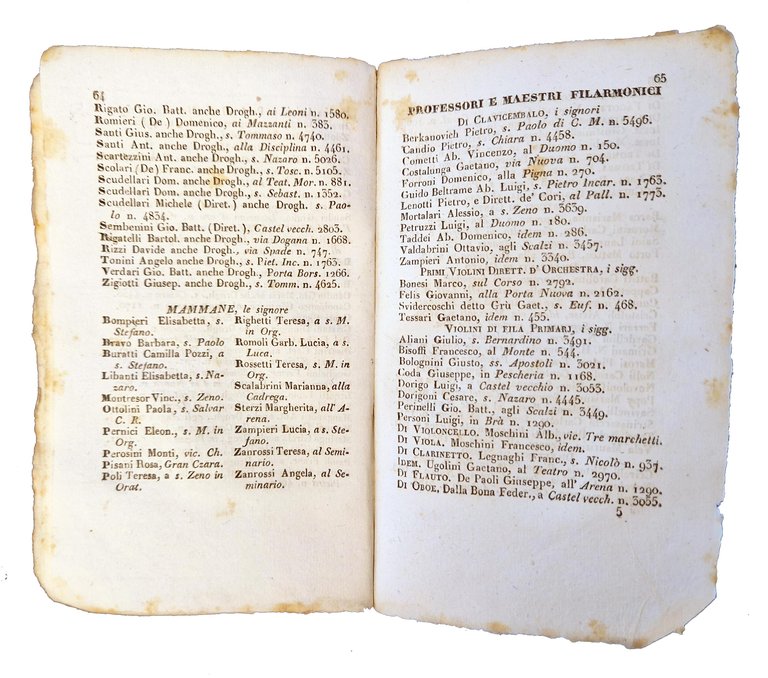 64
Rigato Gio. Batt. anche Drogh., ai Leoni n. 1580.
Romieri ( De ) Domenico, ai Mazzanti n. 383.
Santi Gius. anche Drogh., s. Tommaso n. 4740.
Santi Ant. anche Drogh., alla Disciplina n. 4461.
Scartezzini Ant. anche Drogh., s. Nazaro n. 5026.
Scolari (De) Franc. anche Drogh., s. Tosc. n. 5105.
Scudellari Dom. anche Drogh., al Teat. Mor. n. 881.
Scudellari Dom. anche Drogh., s. Sebast. n. 1352.
Scudellari Michele (Diret.) anche Drogh. s. Pao-
lo n. 4834.
Sembenini Gio. Batt. (Diret.), Castel vecch. 2803.
Rigatelli Bartol. anche Drogh., via Dogana n. 1668.
Rizzi Davide anche Drogh., via Spade n. 747.
Tonini Angelo anche Drogh., s. Piet. Inc. n. 1763.
Verdari Gio. Batt. anche Drogh., Porta Bors. 1266.
Zigiotti Giusep. anche Drogh., s. Tomm. n. 4625.
MAMMANE, le signore
Bompieri Elisabetta, s.
Stefano.
Bravo Barbara, s. Paolo
Buratti Camilla Pozzi, a
s. Stefano.
Libanti Elisabetta, s. Na-
zaro.
Montresor Vinc., s. Zeno.
Ottolini Paola, s. Salvar
C. R.
Pernici Eleon., s. M. in
Org.
Perosini Monti, vic. Ch.
Pisani Rosa, Gran Czara.
Poli Teresa, a s. Zeno in
Orat.
Righetti Teresa, a s. M.
in Org.
Romoli Garb. Lucia, a s.
Luca.
Rossetti Teresa, s. M. in
Org.
Scalabrini Marianna, alla
Cadrega.
Sterzi Margherita, all' A-
rena.
Zampieri Lucia, a s. Ste-
fano.
Zanrossi Teresa, al Semi-
nario.
Zanrossi Angela, al Se-
minario.
65
PROFESSORI E MAESTRI FILARMONICI
DI CLAVICEMBALO, i signori
Berkanovich Pietro, s. Paolo di C. M. n. 5496.
Candio Pietro, s. Chiara n. 4458.
Cometti Ab. Vincenzo, al Duomo n. 150.
Costalunga Gaetano, via Nuova n. 704.
Forroni Domenico, alla Pigna n. 270.
Guido Beltrame Ab. Luigi, s. Pietro Incar. n. 1763.
Lenotti Pietro, e Dirett. de' Cori, al Pall. n. 1773.
Mortalari Alessio, a s. Zeno n. 3639.
Petruzzi Luigi, al Duomo n. 180.
Taddei Ab. Domenico, idem n. 286.
Valdabrini Ottavio, agli Scalzi n. 3457.
Zampieri Antonio, idem n. 3340.
PRIMI VIOLINI DIRETT. D' ORCHESTRA, i sigg.
Bonesi Marco, sul Corso n. 2792.
Felis Giovanni, alla Porta Nuova n. 2162.
Svidercoschi detto Grù Gaet., s. Euf. n. 468.
Tessari Gaetano, idem n. 455.
VIOLINI DI FILA PRIMARJ, i sigg.
Aliani Giulio, s. Bernardino n. 3491.
Bisoffi Francesco, al Monte n. 544.
Bolognini Giusto, ss. Apostoli n. 3021.
Coda Giuseppe, in Pescheria n. 1168.
Dorigo Luigi, a Castel vecchio n. 3053.
Dorigoni Cesare, s. Nazaro n. 4445.
Perinelli Gio. Batt., agli Scalzi n. 3449.
Personi Luigi, in Brà n. 1290.
DI VIOLONCELLO. Moschini Alb., vic. Tre marchetti.
DI VIOLA. Moschini Francesco, idem.
DI CLARINETTO. Legnaghi Franc., s. Nicolò n. 937.
IDEM. Ugolini Gaetano, al Teatro n. 2970.
DI FLAUTO. De Paoli Giuseppe, all' Arena n. 1290.
DI OBOE, Dalla Bona Feder., a Castel vecch. n. 3055.
5